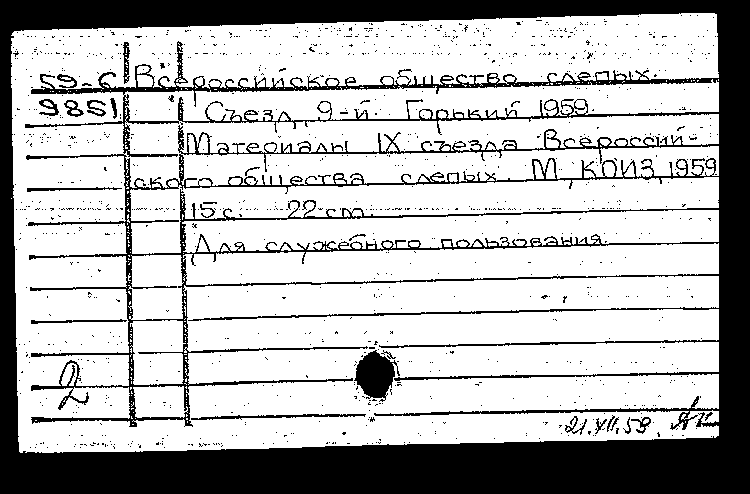 59-6 Всероссийское общество слепых.
9851 Съезд, 9-й. Горький, 1959.
Материалы IX съезда Всероссий-
ского общества слепых. М., КОИЗ, 1959
15 с. 22 cm.
Для служебного пользования.
2
21.XII.59.